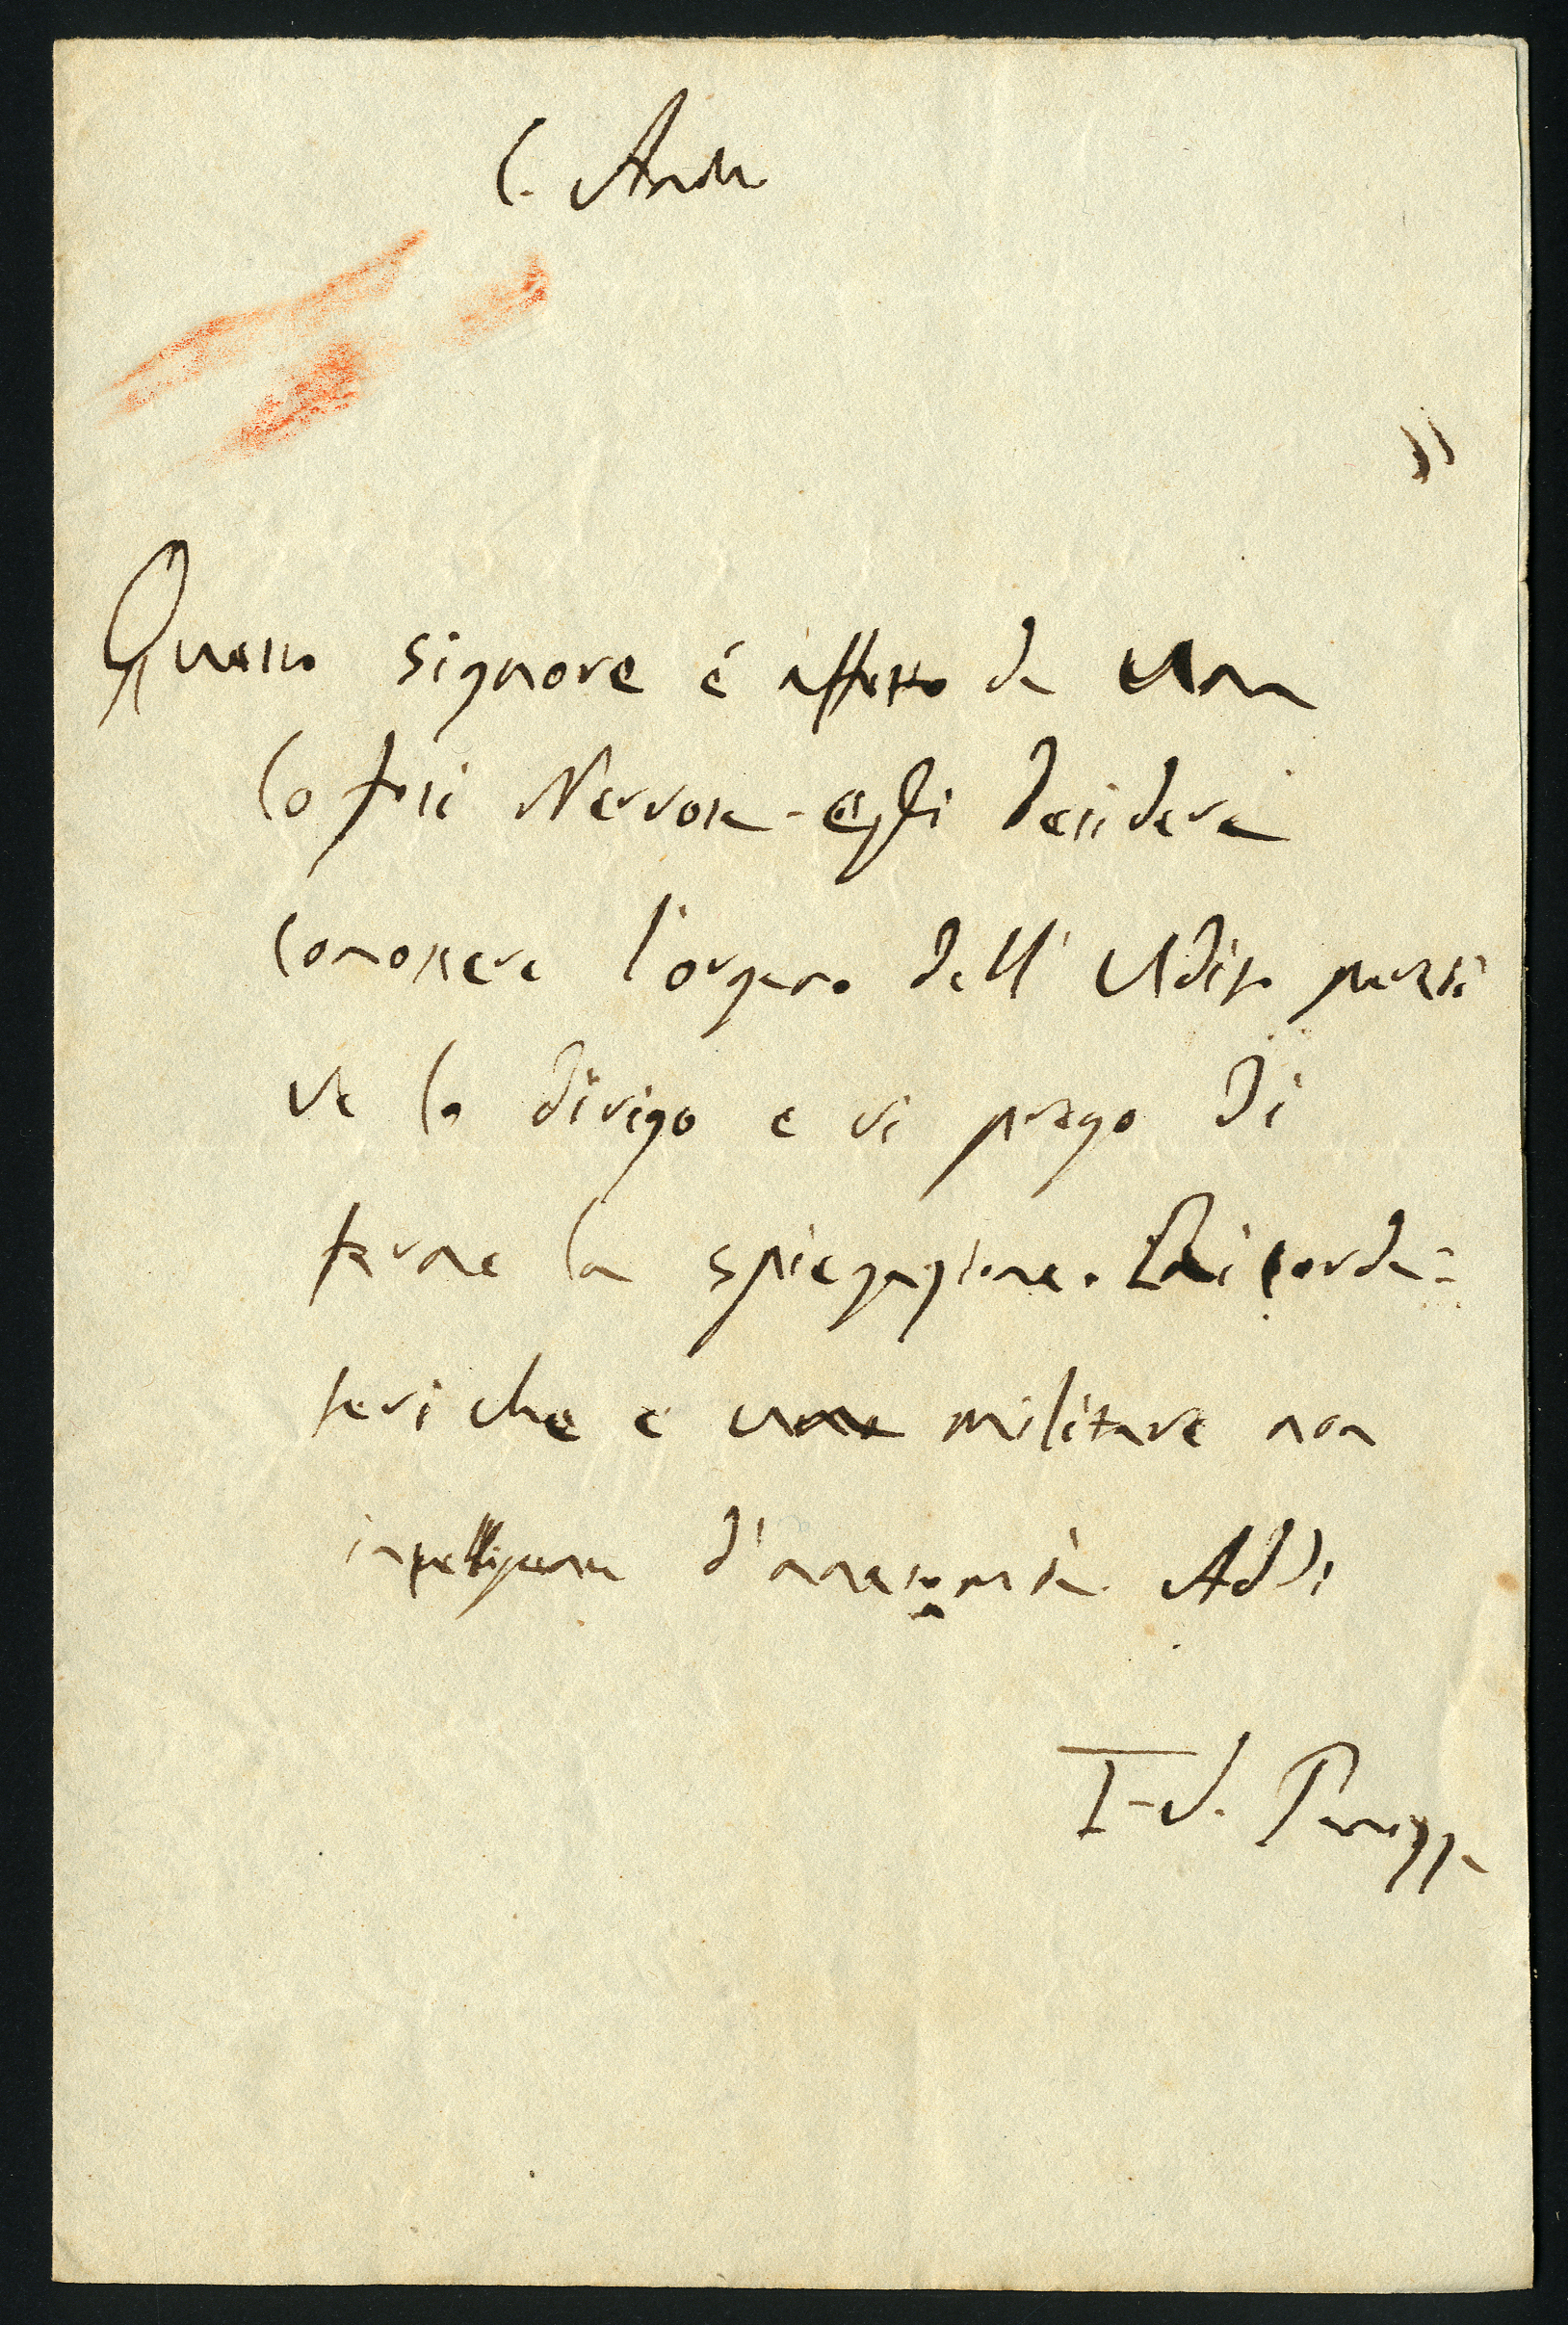 C.
Questo signore é affetto da una
Cofosi Nervosa - egli desidera
conoscere l'organo dell' Udito perciò
ve lo dirigo e vi prego di
farne la spiegazione. Ricorda=
tevi che e una militare non
intelligente d'anatomia Addi